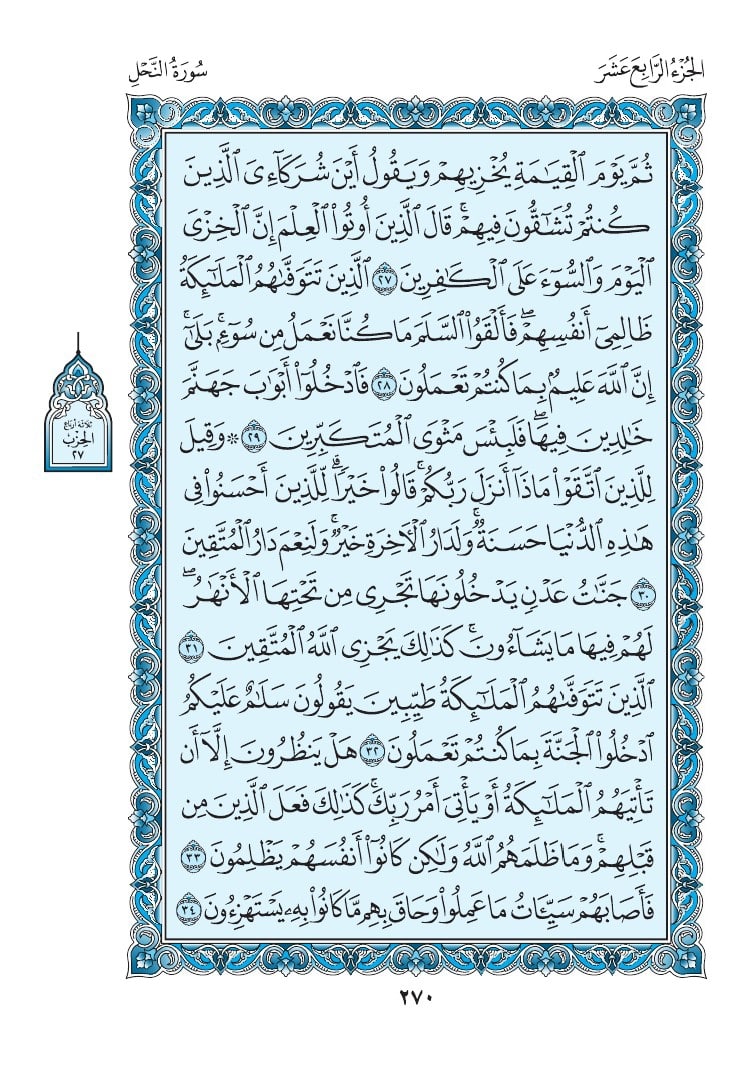 الجُزْءُ الرَّابِعَ عَشَرَ
سُورَةُ النَّحْلِ
ثُمَّ يَوْمَ ٱلْقِيَٰمَةِ يُخْزِيهِمْ وَيَقُولُ أَيْنَ شُرَكَآءِىَ ٱلَّذِينَ
كُنتُمْ تُشَٰٓقُّونَ فِيهِمْ ۚ قَالَ ٱلَّذِينَ أُوتُوا۟ ٱلْعِلْمَ إِنَّ ٱلْخِزْىَ
ٱلْيَوْمَ وَٱلسُّوٓءَ عَلَى ٱلْكَٰفِرِينَ ٢٧ ٱلَّذِينَ تَتَوَفَّىٰهُمُ ٱلْمَلَٰٓئِكَةُ
ظَالِمِىٓ أَنفُسِهِمْ ۖ فَأَلْقَوُا۟ ٱلسَّلَمَ مَا كُنَّا نَعْمَلُ مِن سُوٓءٍۭ ۚ بَلَىٰٓ
إِنَّ ٱللَّهَ عَلِيمٌۢ بِمَا كُنتُمْ تَعْمَلُونَ ٢٨ فَٱدْخُلُوٓا۟ أَبْوَٰبَ جَهَنَّمَ
خَٰلِدِينَ فِيهَا ۖ فَلَبِئْسَ مَثْوَى ٱلْمُتَكَبِّرِينَ ٢٩ ۞ وَقِيلَ
لِلَّذِينَ ٱتَّقَوْا۟ مَاذَآ أَنزَلَ رَبُّكُمْ ۚ قَالُوا۟ خَيْرًا ۗ لِّلَّذِينَ أَحْسَنُوا۟ فِى
هَٰذِهِ ٱلدُّنْيَا حَسَنَةٌ ۚ وَلَدَارُ ٱلْءَاخِرَةِ خَيْرٌ ۚ وَلَنِعْمَ دَارُ ٱلْمُتَّقِينَ
٣٠ جَنَّٰتُ عَدْنٍ يَدْخُلُونَهَا تَجْرِى مِن تَحْتِهَا ٱلْأَنْهَٰرُ ۖ
لَهُمْ فِيهَا مَا يَشَآءُونَ ۚ كَذَٰلِكَ يَجْزِى ٱللَّهُ ٱلْمُتَّقِينَ ٣١
ٱلَّذِينَ تَتَوَفَّىٰهُمُ ٱلْمَلَٰٓئِكَةُ طَيِّبِينَ ۙ يَقُولُونَ سَلَٰمٌ عَلَيْكُمُ
ٱدْخُلُوا۟ ٱلْجَنَّةَ بِمَا كُنتُمْ تَعْمَلُونَ ٣٢ هَلْ يَنظُرُونَ إِلَّآ أَن
تَأْتِيَهُمُ ٱلْمَلَٰٓئِكَةُ أَوْ يَأْتِىَ أَمْرُ رَبِّكَ ۚ كَذَٰلِكَ فَعَلَ ٱلَّذِينَ مِن
قَبْلِهِمْ ۚ وَمَا ظَلَمَهُمُ ٱللَّهُ وَلَٰكِن كَانُوٓا۟ أَنفُسَهُمْ يَظْلِمُونَ ٣٣
فَأَصَابَهُمْ سَيِّـَٔاتُ مَا عَمِلُوا۟ وَحَاقَ بِهِم مَّا كَانُوا۟ بِهِۦ يَسْتَهْزِءُونَ ٣٤
ثلاثة أرباع
الحزب
٢٧
٢٧٠